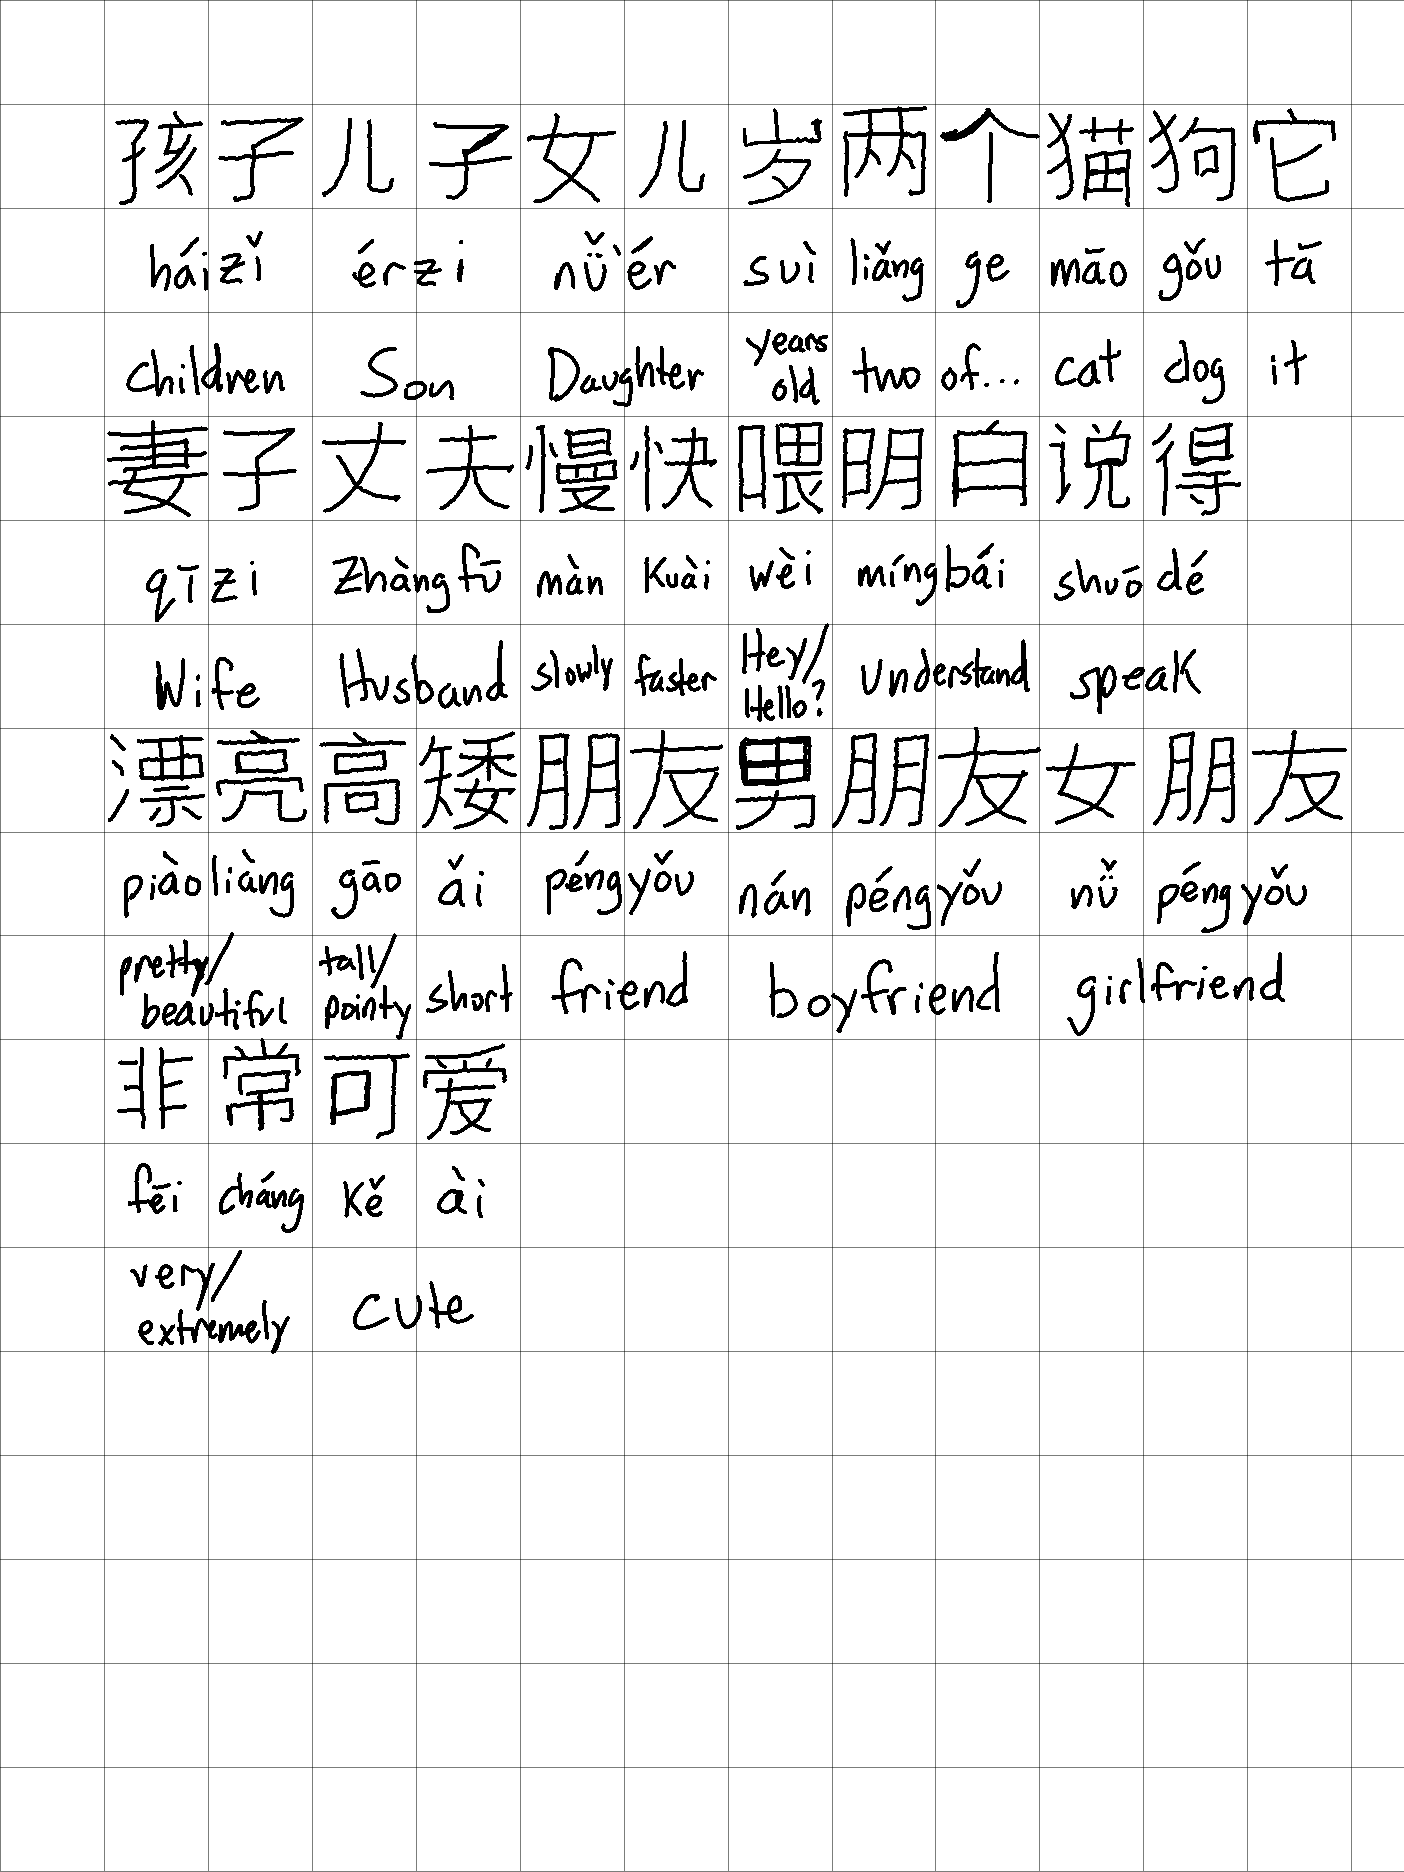 孩子儿子女儿岁两个猫狗它
háizǐ érzi nǚ'ér suì liǎng ge māo gǒu tā
Children Son Daughter years old two of... cat dog it
妻子丈夫慢快喂明白说得
qīzi Zhàngfū màn Kuài wèi míngbái shuōdé
Wife Husband slowly faster Hey/Hello? Understand speak
漂亮高矮朋友男朋友女朋友
piàoliàng gāo ǎi péngyǒu nán péngyǒu nǚ péngyǒu
pretty/beautiful tall/pointy short friend boyfriend girlfriend
非常可爱
fēi cháng Kě ài
very/extremely cute